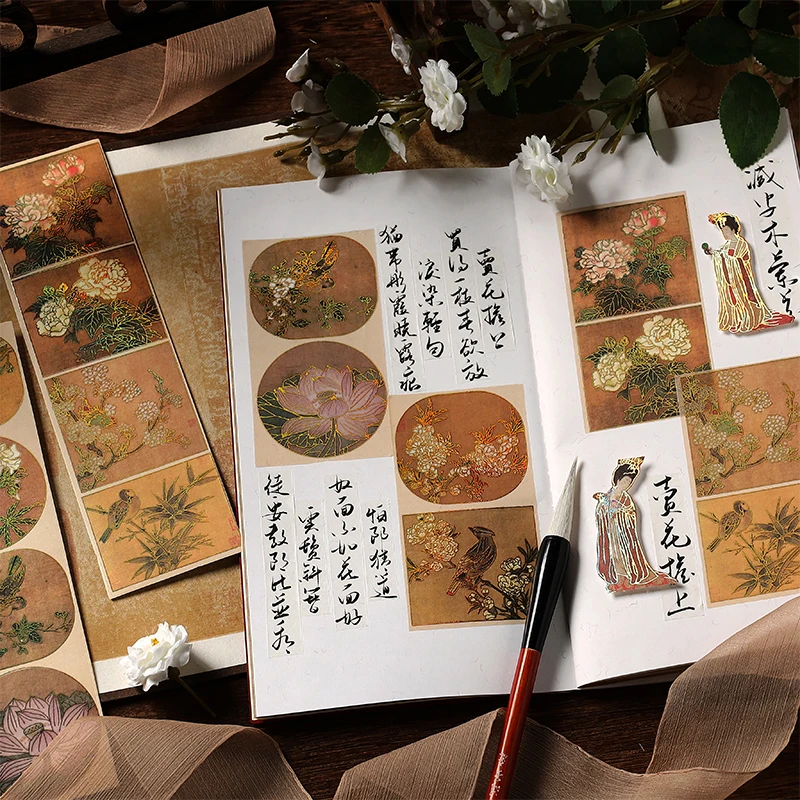 減字木蘭花
賣花擔上
賣花擔上
買得一枝春欲放
淚染輕勻
猶帶彤霞曉露痕
怕郎猜道
奴面不如花面好
雲鬢斜簪
徒要教郎比並看